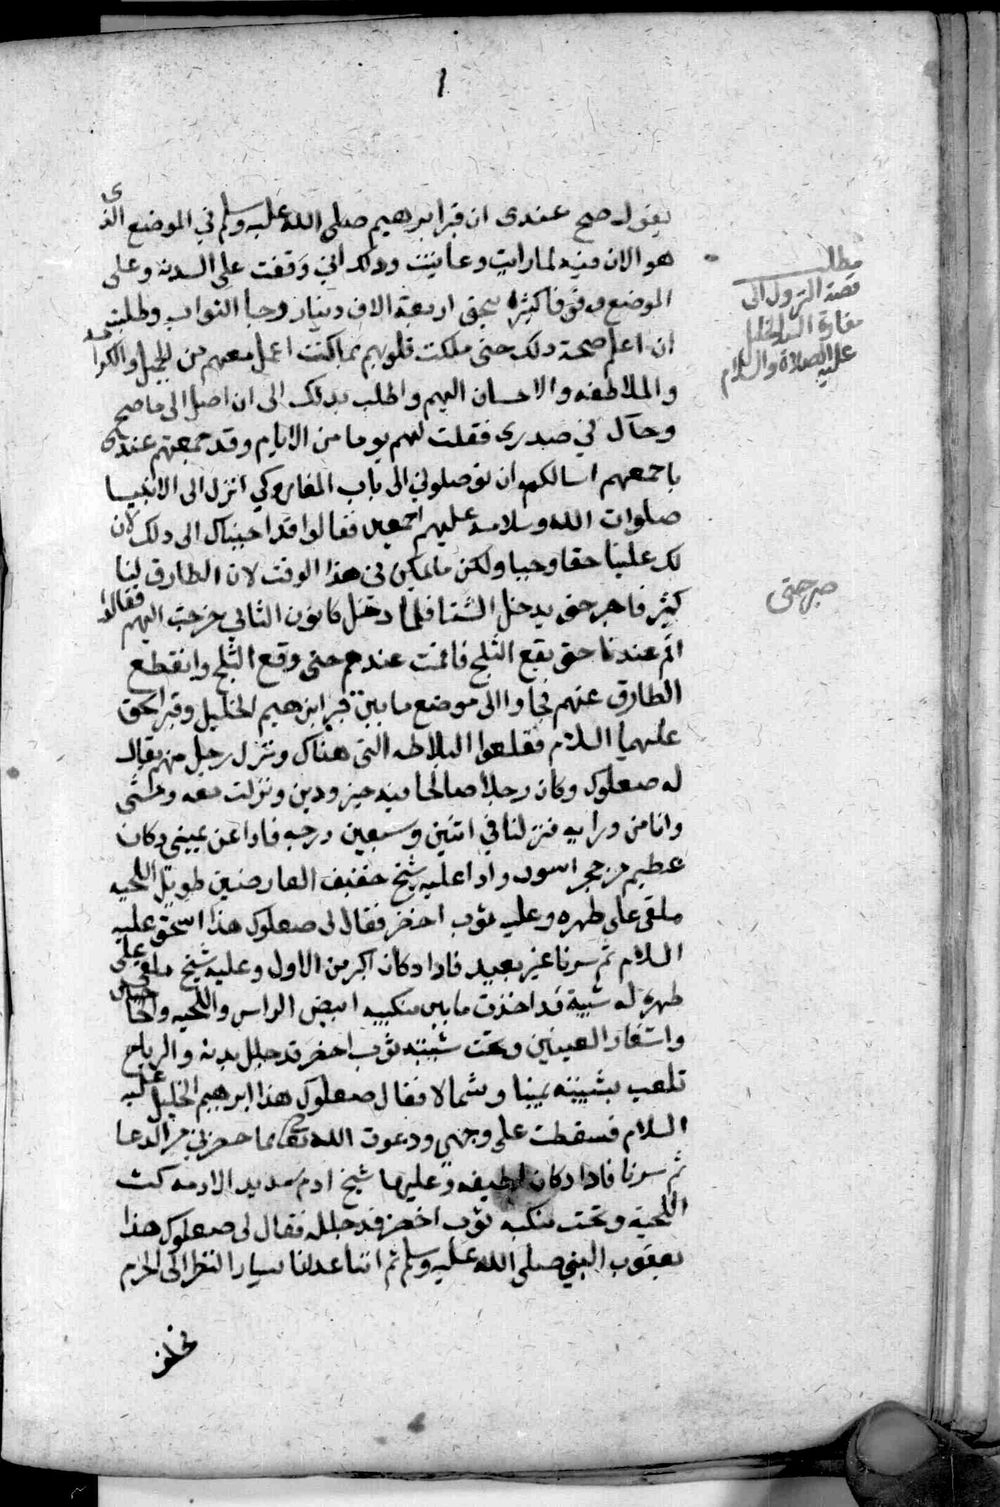 ١
يقول صح عندى ان قبر ابرهيم صلى الله عليه وسلم في الموضع الذى
هو الان فيه لما رايت وعاينت وذلك اني وقفت على السدنه وعلى
الموضع وقوفا كثيره بحق اربعة الاف دينار رجا الثواب وطلبت
ان اعلم صحة ذلك حتى ملكت قلوبهم بما كنت اعمل معهم من الجميل والكرامه
والملاطفه والاحسان اليهم واطلب بذلك الى ان اصل الى ما صح
وحاك في صدرى فقلت لهم يوما من الايام وقد جمعتهم عندى
باجمعهم اسالكم ان توصلوني الى باب المغار وكي انزل الى الانبيا
صلوات الله وسلامه عليهم اجمعين فقالوا قد اجبناك الى ذلك لان
لك علينا حقا وجبا ولكن ما يمكن في هذا الوقت لان الطارق لنا
كثير فاصبر حتى يدخل الشتا فلما دخل كانون الثاني خرجت اليهم فقالوا
اقم عندنا حتى يقع الثلج فاقمت عندهم حتى وقع الثلج وانقطع
الطارق عنهم فجاوا الى موضع ما بين قبر ابرهيم الخليل وقبر اسحق
عليهما السلام فقلعوا البلاطه التى هناك ونزل رجل منهم يقال
له صعلوك وكان رجلا صالحا فيه خير ودين ونزلت معه ومشى
وانا من ورايه فنزلنا في اثنين وسبعين درجه فاذا عن يمينى دكان
عظيم من حجر اسود واذا عليه شيخ خفيف العارضين طويل اللحيه
ملقى على ظهره وعليه ثوب اخضر فقال لى صعلوك هذا اسحق عليه
السلام ثم سرنا غير بعيد فاذا دكان اكبر من الاول وعليه شيخ ملقى على
ظهره له شيبة قد اخذت ما بين منكبيه ابيض الراس واللحيه والحاجبين
واشفار العينين وتحت شيبته ثوب اخضر قد جلل بدنه والرياح
تلعب بشيبته يمينا وشمالا فقال صعلوك هذا ابرهيم الخليل عليه
السلام فسقطت على وجهي ودعوت الله تعالى بما حضرني من الدعا
ثم سرنا فاذا دكان لطيفه وعليها شيخ ادم شديد الادمه كث
اللحية وتحت منكبه ثوب اخضر قد جلله فقال لى صعلوك هذا
يعقوب النبي صلى الله عليه وسلم ثم اننا عدلنا يسارا لننظر الى الحرم
فحلف
مطلب
قصة النزول الى
مغارة السيد الخليل
عليه الصلاة والسلام
صبر حتى